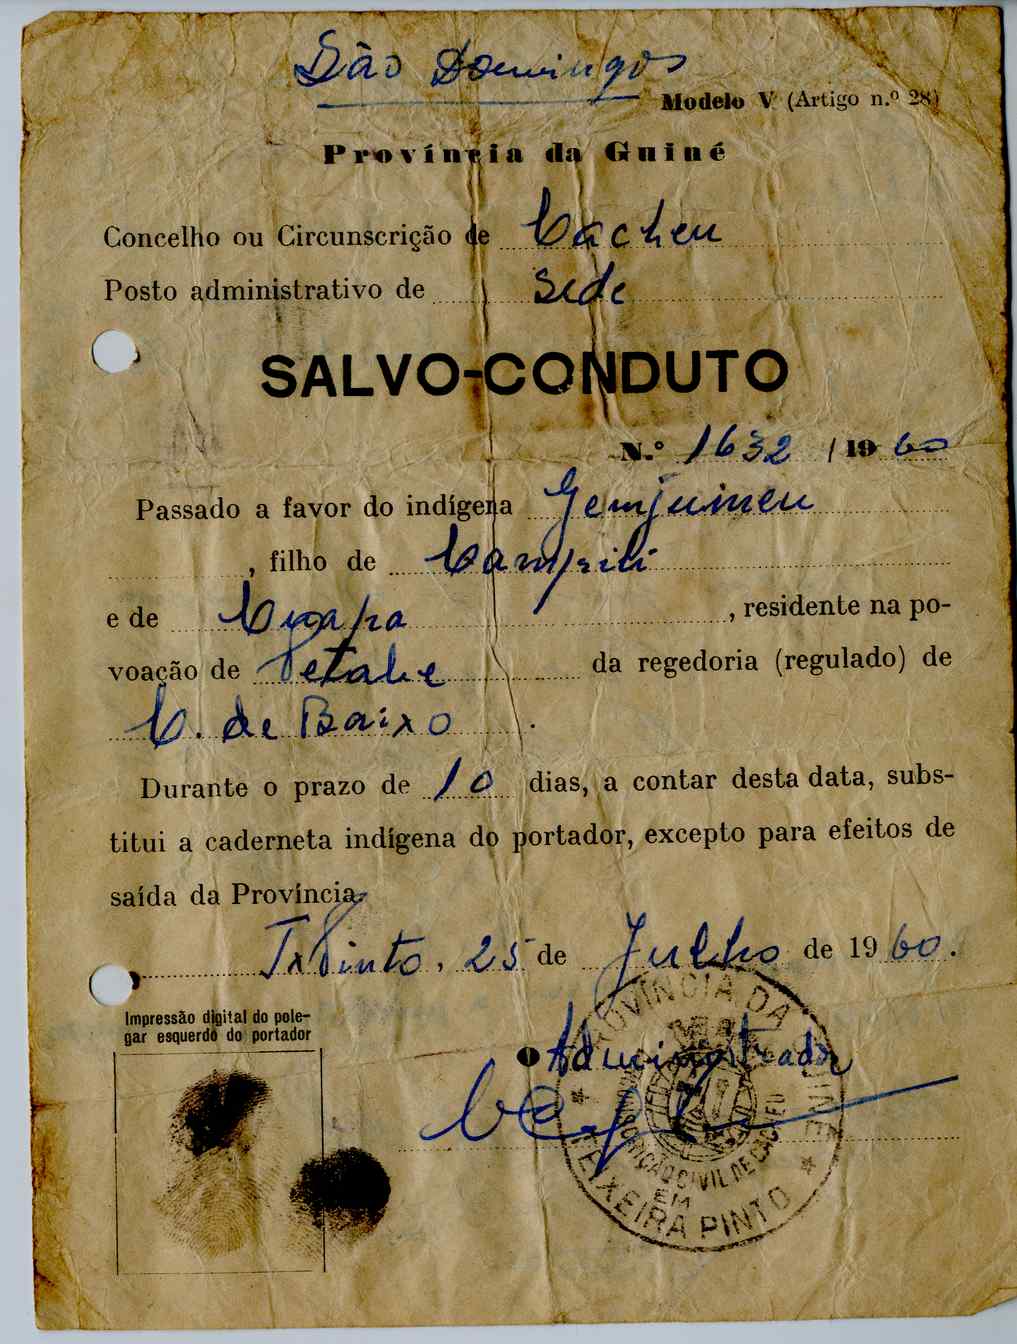 São Domingos
Modelo V (Artigo n.º 28)
Província da Guiné
Concelho ou Circunscrição de Cacheu
Posto administrativo de Sede
SALVO-CONDUTO
N.º 1632 / 1960
Passado a favor do indígena Gemjuimeu
, filho de Campili
e de Cuapa, residente na po-
voação de Petabe da regedoria (regulado) de
C. de Baixo.
Durante o prazo de 10 dias, a contar desta data, subs-
titui a caderneta indígena do portador, excepto para efeitos de
saída da Província
T. Pinto, 25 de Julho de 1960.
Impressão digital do pole-
gar esquerdo do portador
O Administrador
PROVÍNCIA DA GUINÉ
CIRCUNSCRIÇÃO CIVIL DE CACHEU
EM
TEIXEIRA PINTO